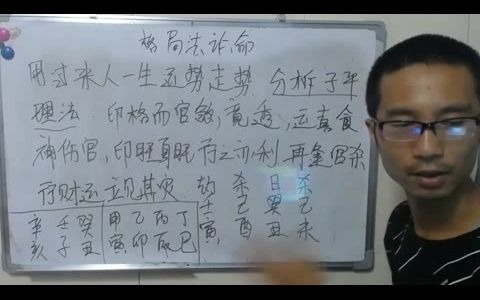 格局法论命
用过来人一生运势走势 分析子平
理法 印格而官煞竟透,运喜食
神伤官,印旺身旺行之亦利 再逢官杀
行财运立见其灾 劫 杀 日 杀
壬 己 癸 己
寅 酉 丑 未
辛 壬 癸 甲 乙 丙 丁
亥 子 丑 寅 卯 辰 巳